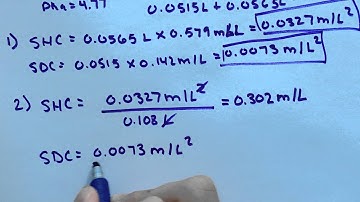 pAa = 4.77
0.0515L + 0.0565L
1) SHC = 0.0565L x 0.579m/L = 0.0327m/L²
SDC = 0.0515 x 0.142m/L = 0.0073m/L²
2) SHC = 0.0327m/L² / 0.108L = 0.302m/L
SDC = 0.0073m/L²